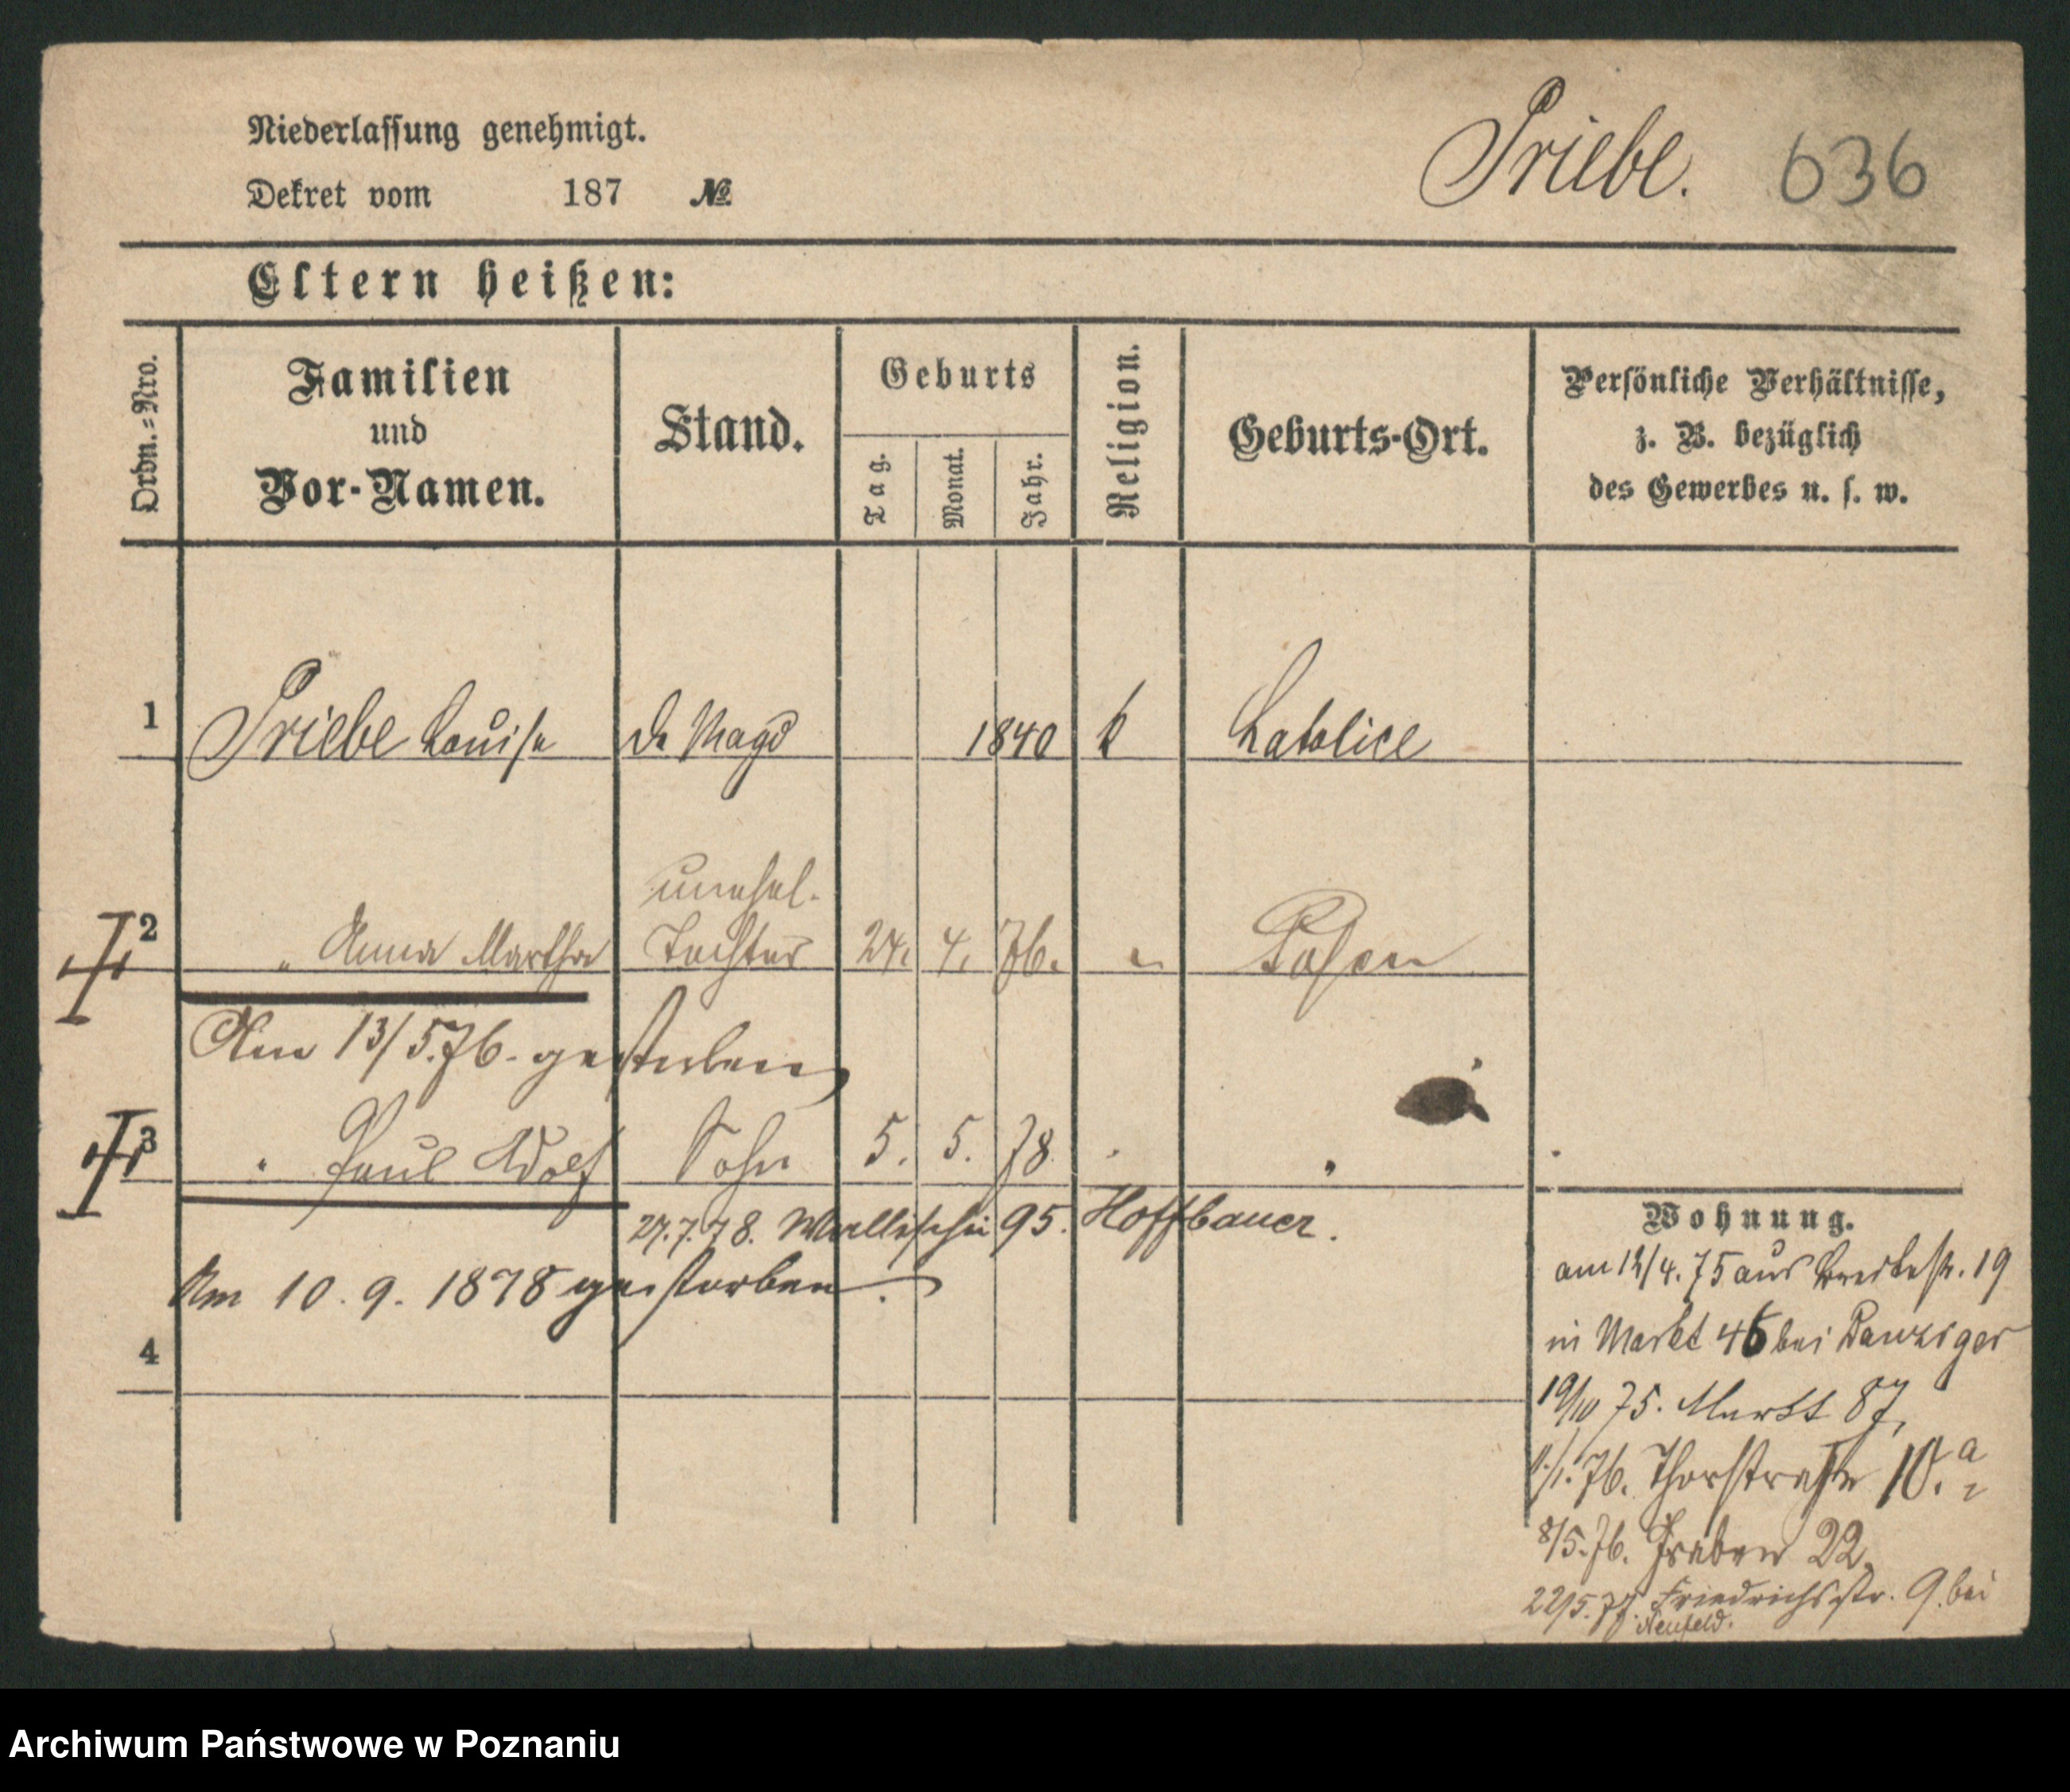 Niederlassung genehmigt.
Priebe. 636
Dekret vom 187 №
Eltern heißen:
Ordn.-Nro.
Familien und Vor-Namen.
Stand.
Geburts
Tag. Monat. Jahr.
Religion.
Geburts-Ort.
Persönliche Verhältnisse, z. B. bezüglich des Gewerbes u. s. w.
1 Priebe Louise d. Magd 1840 k Latalice
unehel.
2 " Anna Martha Tochter 24. 4. 76. " Posen
Am 13/5.76. gestorben
3 " Paul Adolf Sohn 5. 5. 78 " "
27.7.78. Wallischei 95. Hoffbauer.
Am 10. 9. 1878 gestorben.
4
Wohnung.
am 12/4. 75 aus Breitestr. 19
in Markt 46 bei Danziger
19/10 75. Markt 87,
76. Thorstraße 10.a
8/5.76. Graben 22.
22/5.77. Friedrichsstr. 9. bei
Neufeld.
Archiwum Państwowe w Poznaniu